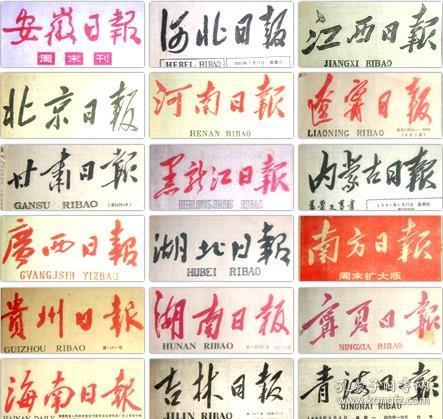 安徽日報
周末刊
河北日报
HEBEI RIBAO
江西日報
JIANGXI RIBAO
北京日报
河南日報
HENAN RIBAO
遼宁日報
LIAONING RIBAO
甘肃日報
GANSU RIBAO
黑龍江日報
HEILONGJIANG RIBAO
内蒙古日报
廣西日報
GVANGJSIH YIZBAU
湖北日報
HUBEI RIBAO
南方日报
周末扩大版
貴州日報
GUIZHOU RIBAO
湖南日报
HUNAN RIBAO
宁夏日報
NINGXIA RIBAO
海南日報
HAINAN DAILY
吉林日報
JILIN RIBAO
青海日報
QINGHAI RIBAO